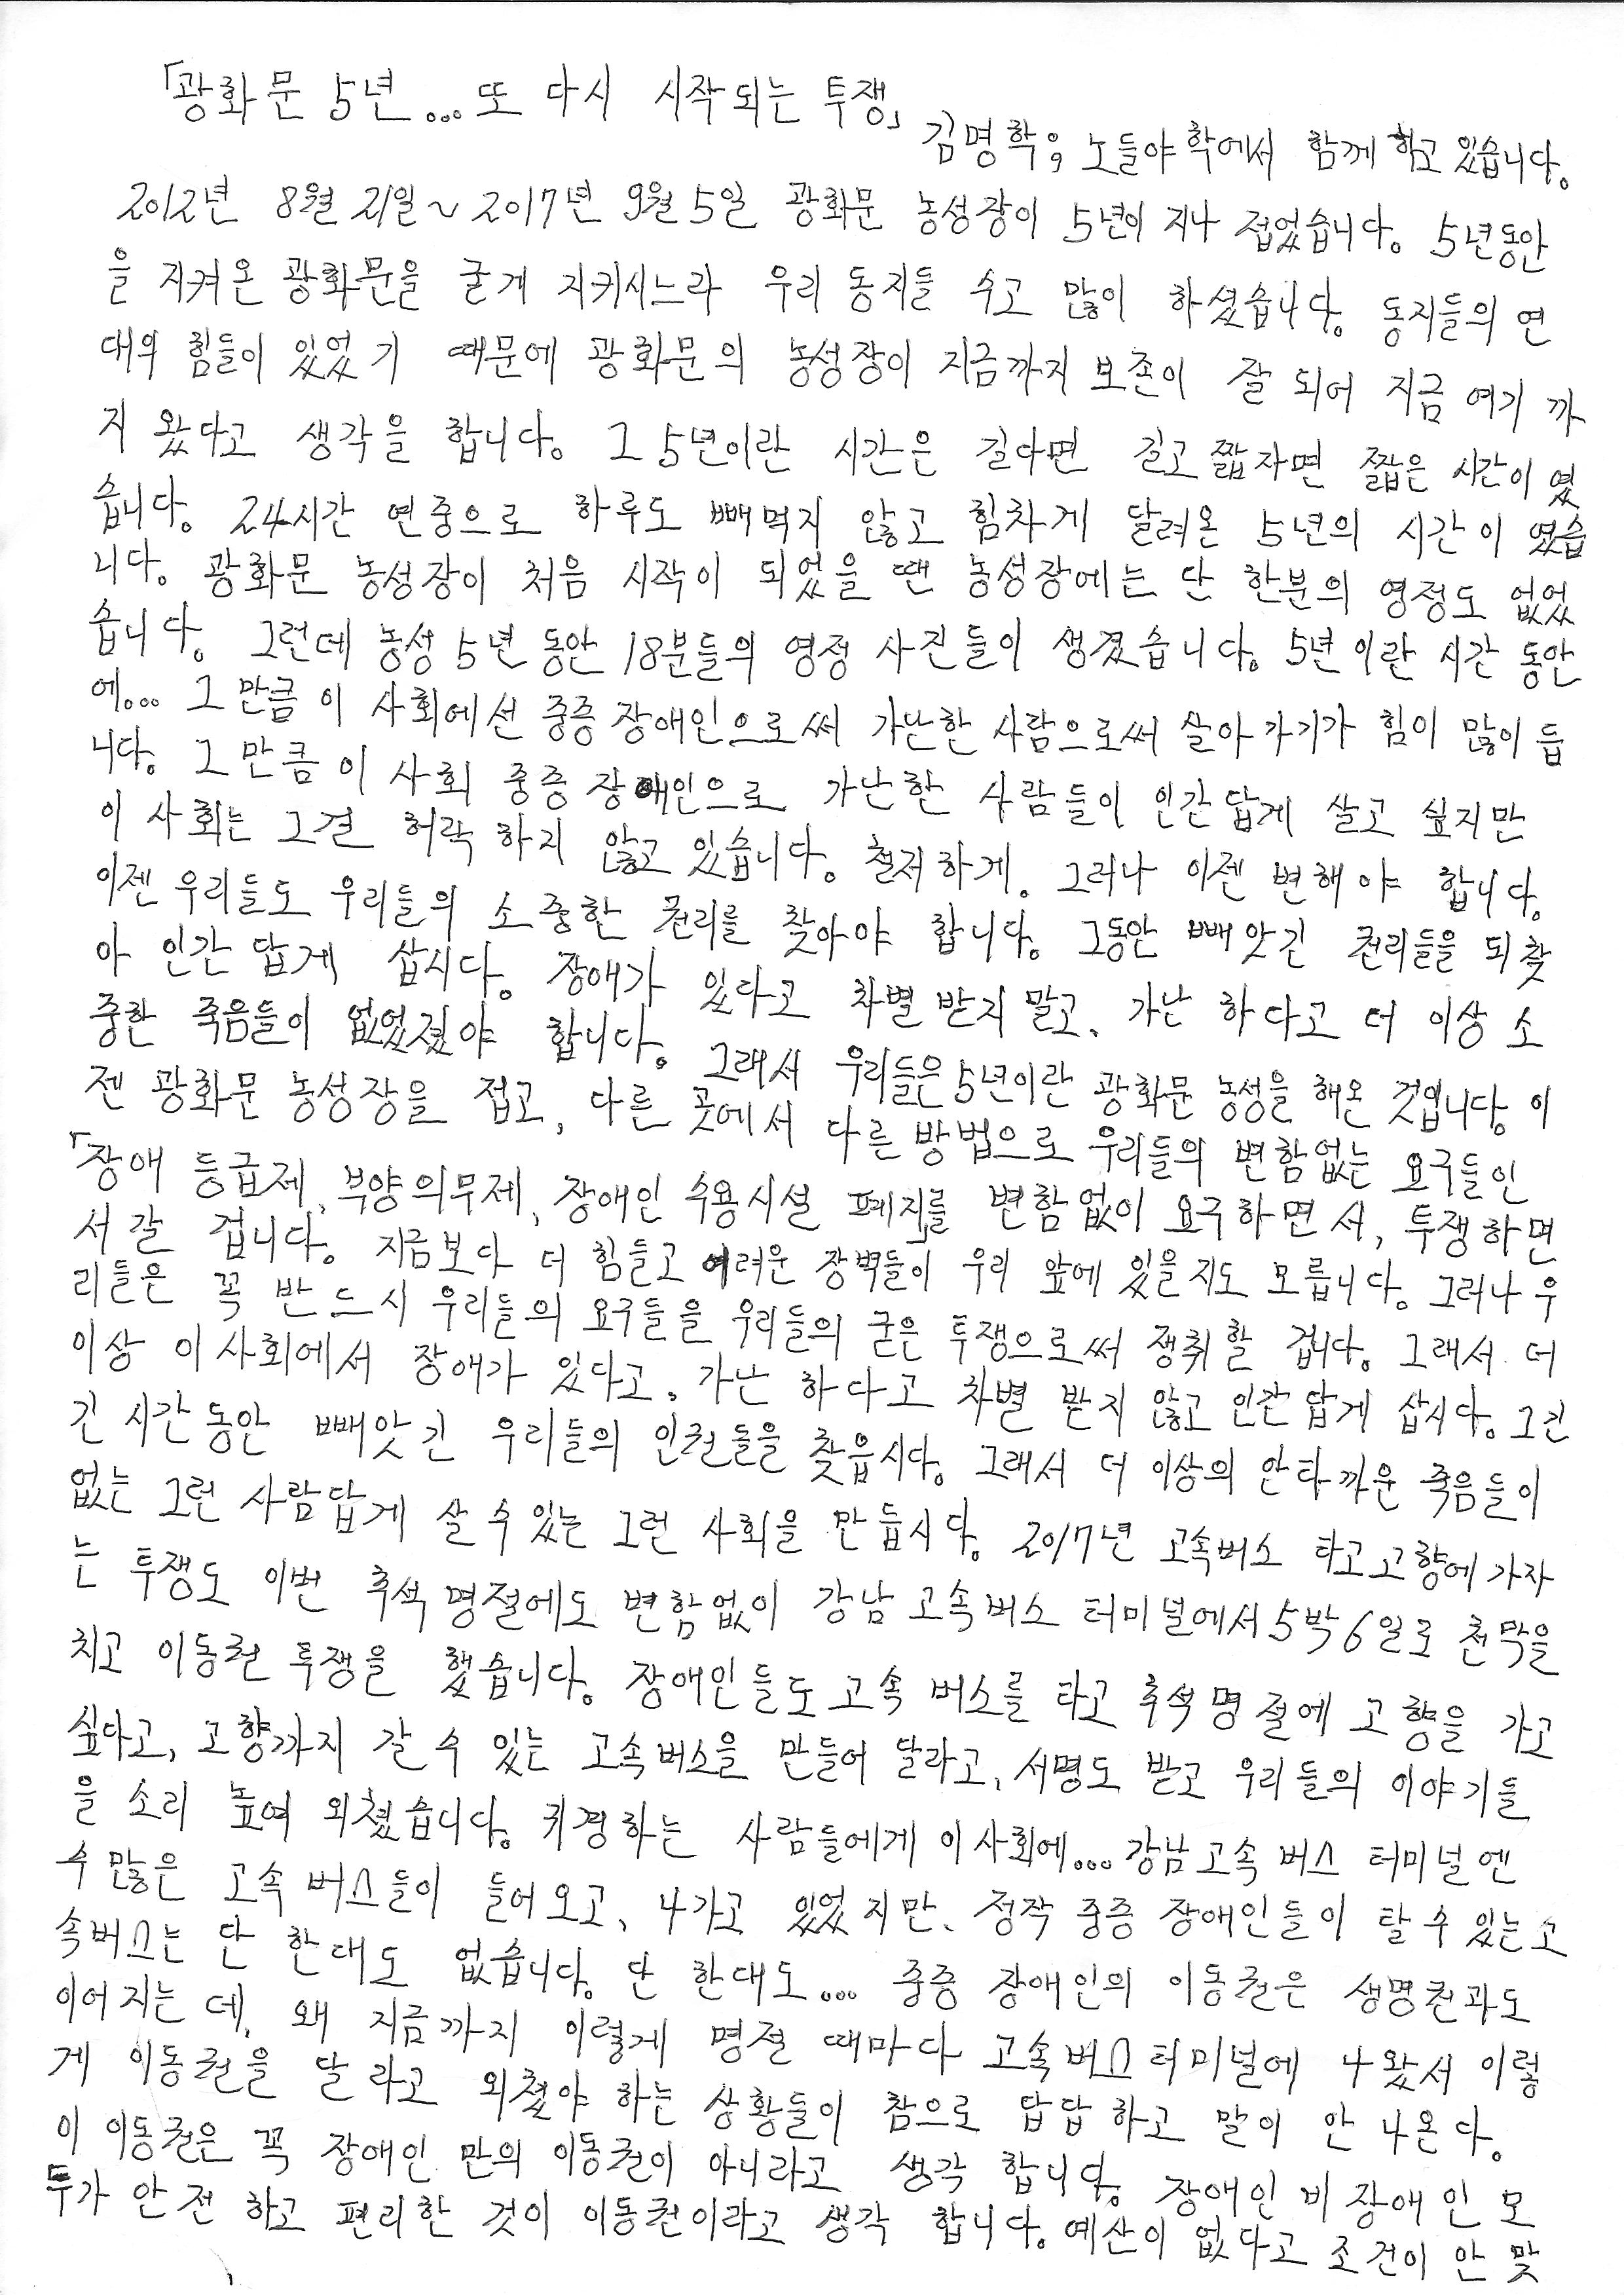 「광화문 5년... 또 다시 시작되는 투쟁」
김명학; 노들야학에서 함께 하고 있습니다.
2012년 8월 21일 ~ 2017년 9월 5일 광화문 농성장이 5년이 지나 접었습니다. 5년동안
을 지켜온 광화문을 굳게 지키시느라 우리 동지들 수고 많이 하셨습니다. 동지들의 연
대의 힘들이 있었기 때문에 광화문의 농성장이 지금까지 보존이 잘 되어 지금 여기 까
지 왔다고 생각을 합니다. 그 5년이란 시간은 길다면 길고 짧자면 짧은 시간이 였
습니다. 24시간 연중으로 하루도 빼먹지 않고 힘차게 달려온 5년의 시간이 였습
니다. 광화문 농성장이 처음 시작이 되었을 땐 농성장에는 단 한분의 영정도 없었
습니다. 그런데 농성 5년 동안 18분들의 영정 사진들이 생겼습니다. 5년이란 시간 동안
에... 그 만큼 이 사회에선 중증 장애인으로써 가난한 사람으로써 살아 가기가 힘이 많이 듭
니다. 그 만큼 이 사회 중증 장애인으로 가난한 사람들이 인간 답게 살고 싶지만
이 사회는 그걸 허락 하지 않고 있습니다. 철저하게. 그러나 이젠 변해야 합니다.
이젠 우리들도 우리들의 소중한 권리를 찾아야 합니다. 그동안 빼앗긴 권리들을 되찾
아 인간 답게 삽시다. 장애가 있다고 차별 받지 말고, 가난 하다고 더 이상 소
중한 죽음들이 없었졌야 합니다. 그래서 우리들은 5년이란 광화문 농성을 해온 것입니다. 이
젠 광화문 농성장을 접고, 다른 곳에서 다른 방법으로 우리들의 변함없는 요구들인
「장애 등급제, 부양의무제, 장애인 수용시설 폐지」를 변함없이 요구하면서, 투쟁하면
서 갈 겁니다. 지금보다 더 힘들고 어려운 장벽들이 우리 앞에 있을지도 모릅니다. 그러나 우
리들은 꼭 반드시 우리들의 요구들을 우리들의 굳은 투쟁으로써 쟁취할 겁니다. 그래서 더
이상 이 사회에서 장애가 있다고, 가난 하다고 차별 받지 않고 인간 답게 삽시다. 그긴
긴 시간 동안 빼앗긴 우리들의 인권들을 찾읍시다. 그래서 더 이상의 안타까운 죽음들이
없는 그런 사람답게 살 수 있는 그런 사회을 만듭시다. 2017년 고속버스 타고 고향에 가자
는 투쟁도 이번 추석 명절에도 변함없이 강남 고속버스 터미널에서 5박 6일로 천막을
치고 이동권 투쟁을 했습니다. 장애인들도 고속 버스를 타고 추석 명절에 고향을 가고
싶다고, 고향까지 갈 수 있는 고속버스을 만들어 달라고, 서명도 받고 우리들의 이야기들
을 소리 높여 외쳤습니다. 귀경하는 사람들에게 이 사회에... 강남 고속 버스 터미널엔
수 많은 고속 버스들이 들어오고, 나가고 있었지만, 정작 중증 장애인들이 탈 수 있는 고
속버스는 단 한대도 없습니다. 단 한대도... 중증 장애인의 이동권은 생명권과도
이어지는 데, 왜 지금까지 이렇게 명절 때마다 고속버스 터미널에 나왔서 이렇
게 이동권을 달라고 외쳤야 하는 상황들이 참으로 답답 하고 말이 안 나온다.
이 이동권은 꼭 장애인 만의 이동권이 아니라고 생각 합니다. 장애인 비 장애인 모
두가 안전 하고 편리한 것이 이동권이라고 생각 합니다. 예산이 없다고 조건이 안 맞